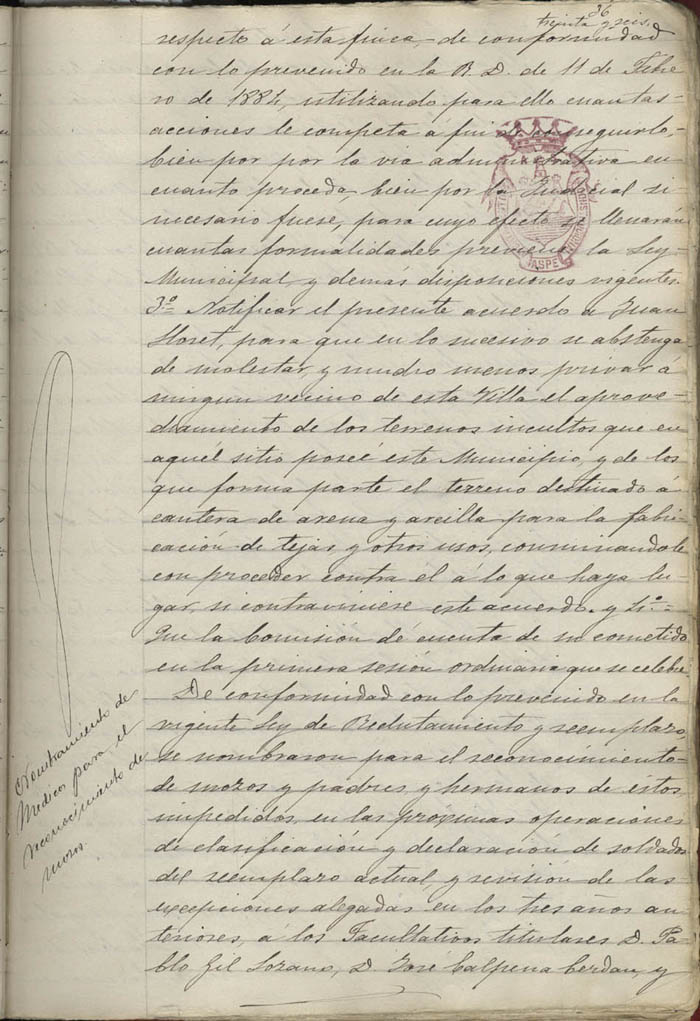 36
treinta y seis.
respecto á esta finca, de conformidad
con lo prevenido en la R. D. de 11 de Febre
ro de 1884, utilizando para ello cuantas
acciones le competa á fin de conseguirlo,
bien por por la via administrativa en
cuanto proceda, bien por la Judicial si
necesario fuese, para cuyo efecto se llenarán
cuantas formalidades previene la Ley
Municipal, y demás disposiciones vigentes.
3º Notificar el presente acuerdo a Juan
Lloret, para que en lo sucesivo se abstenga
de molestar, y mucho menos privar á
ningun vecino de esta Villa el aprove-
chamiento de los terrenos incultos que en
aquél sitio poseé este Municipio, y de los
que forma parte el terreno destinado á
cantera de arena y arcilla para la fabri-
cación de tejas y otros usos, conminandole
con proceder contra el á lo que haya lu-
gar si contraviniese este acuerdo. y 4º=
Que la Comision dé cuenta de su cometido
en la primera sesión ordinaria que se celebre
De conformidad con lo prevenido en la
vigente Ley de Reclutamiento y reemplazo,
se nombraron para el reconocimiento
de mozos y padres, y hermanos de éstos,
impedidos, en las próximas operaciones
de clasificación y declaración de soldados
del reemplazo actual, y revisión de las
excepciones alegadas en los tres años an-
teriores, á los Facultativos titulares D. Pa-
blo Gil Lozano, D. José Calpena Cerdan, y
Nombramiento de
Medicos para el
reconocimiento de
mozos.
ASPE